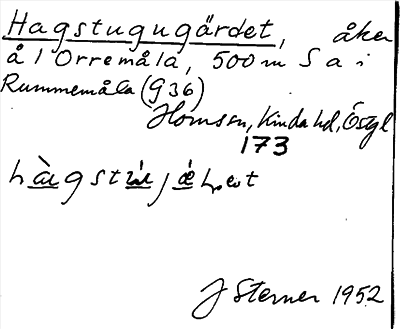 Hagstugugärdet, åker
å 1 Orremåla, 500 m S a i
Rummemåla (G 36)
Horn sn, Kinda hd, Östgl
173
J Sterner 1952